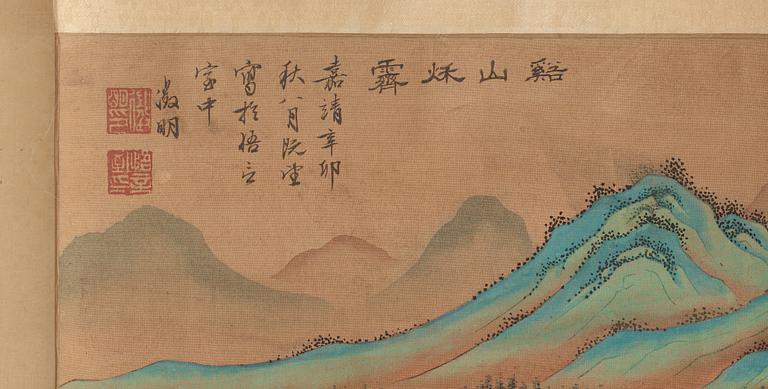 谿山秌霽
嘉靖辛卯
秋八月既望
寫於悟言
室中
徵明